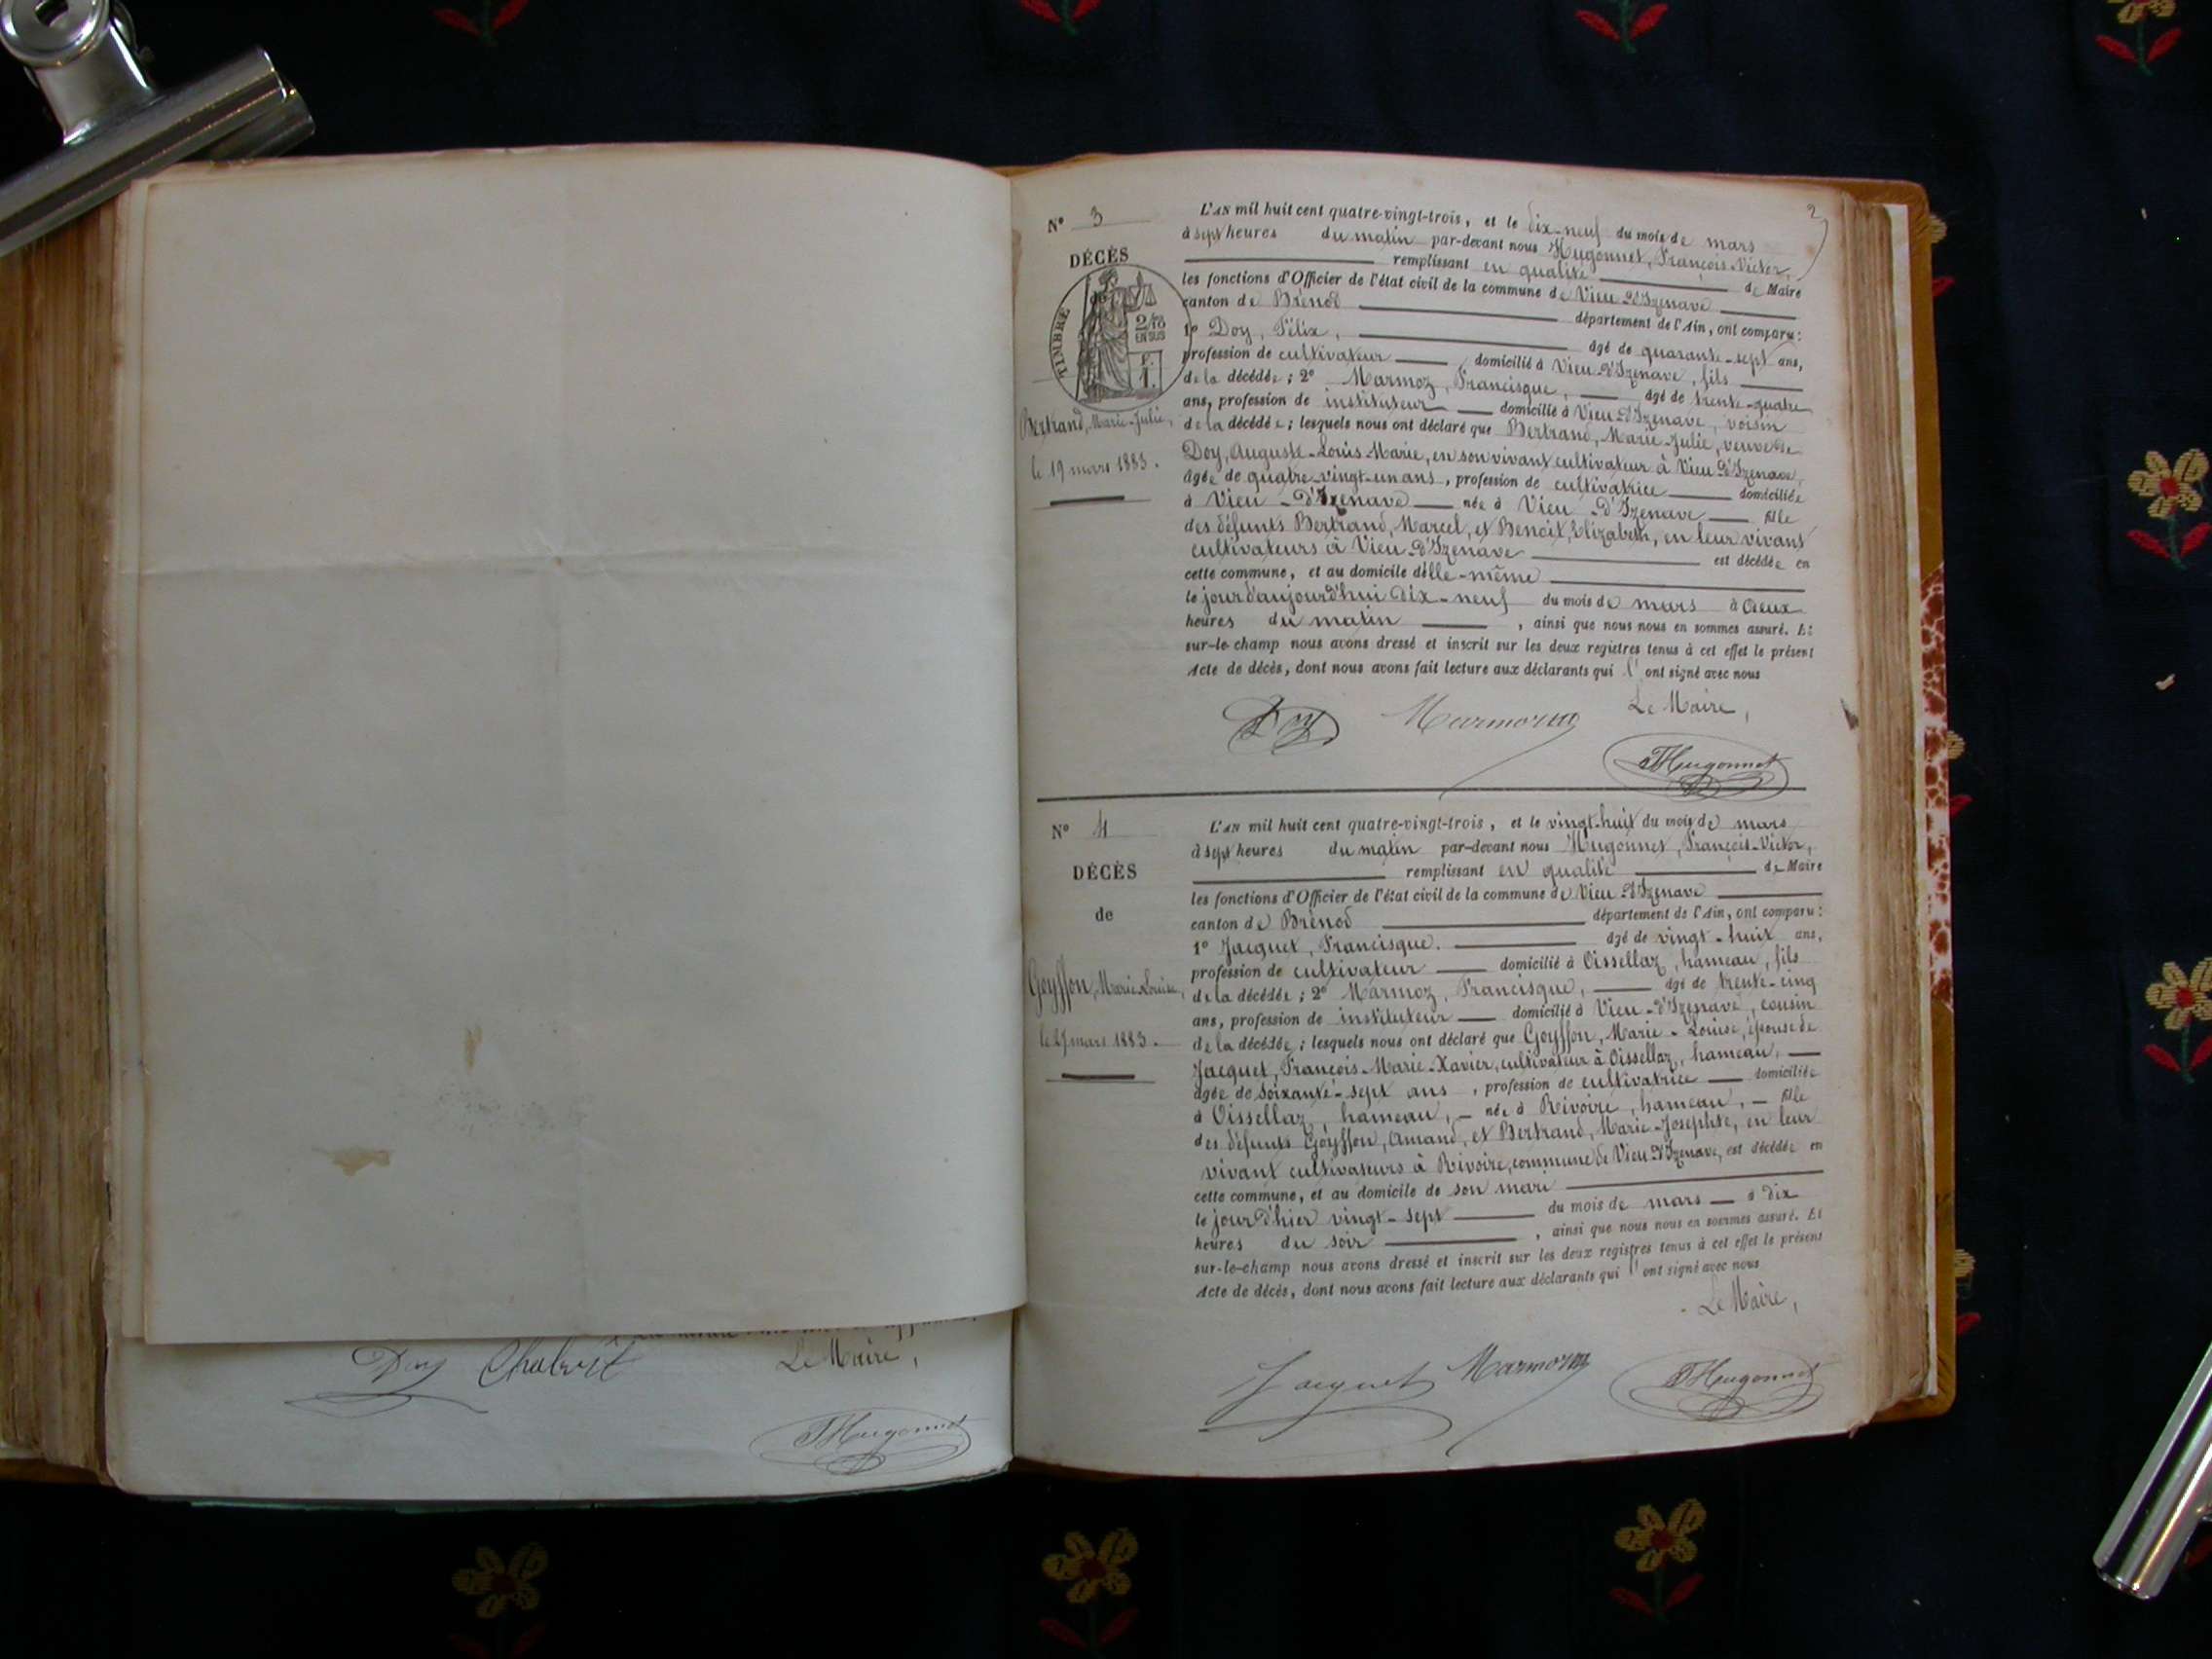 Doy Chabert
Le Maire,
FHugonnet
2
N° 3
DÉCÈS
de
TIMBRE
2/10
EN SUS
F.
1.
Bertrand, Marie-Julie,
le 19 mars 1883.
L'AN mil huit cent quatre-vingt-trois, et le dix-neuf du mois de mars
à sept heures du matin par-devant nous Hugonnet, François-Victor,
remplissant en qualité de Maire
les fonctions d'Officier de l'état civil de la commune de Vieu-d'Izenave
canton de Brénod département de l'Ain, ont comparu:
1° Doy, Félix, âgé de quarante-sept ans,
profession de cultivateur domicilié à Vieu-d'Izenave, fils
de la décédée; 2° Marmoz, Francisque, âgé de trente-quatre
ans, profession de instituteur domicilié à Vieu-d'Izenave, voisin
de la décédée; lesquels nous ont déclaré que Bertrand, Marie-Julie, veuve de
Doy, Auguste-Louis-Marie, en son vivant cultivateur à Vieu-d'Izenave,
âgée de quatre-vingt-un ans, profession de cultivatrice domiciliée
à Vieu-d'Izenave née à Vieu-d'Izenave fille
des défunts Bertrand, Marcel, et Benoit, Elizabeth, en leur vivant
cultivateurs à Vieu-d'Izenave est décédée en
cette commune, et au domicile d'elle-même
le jour d'aujourd'hui dix-neuf du mois de mars à deux
heures du matin, ainsi que nous nous en sommes assuré. Et
sur-le-champ nous avons dressé et inscrit sur les deux registres tenus à cet effet le présent
Acte de décès, dont nous avons fait lecture aux déclarants qui l'ont signé avec nous
Le Maire,
Doy Marmoz
FHugonnet
N° 4
DÉCÈS
de
Goyffon, Marie-Louise,
le 27 mars 1883.
L'AN mil huit cent quatre-vingt-trois, et le vingt-huit du mois de mars
à sept heures du matin par-devant nous Hugonnet, François-Victor,
remplissant en qualité de Maire
les fonctions d'Officier de l'état civil de la commune de Vieu-d'Izenave
canton de Brénod département de l'Ain, ont comparu:
1° Jacquet, Francisque. âgé de vingt-huit ans,
profession de cultivateur domicilié à Oissellaz, hameau, fils
de la décédée; 2° Marmoz, Francisque, âgé de trente-cinq
ans, profession de instituteur domicilié à Vieu-d'Izenave, cousin
de la décédée; lesquels nous ont déclaré que Goyffon, Marie-Louise, épouse de
Jacquet, François-Marie-Xavier, cultivateur à Oissellaz, hameau,
âgée de soixante-sept ans, profession de cultivatrice domiciliée
à Oissellaz, hameau, née à Rivoire, hameau, fille
des défunts Goyffon, Amand, et Bertrand, Marie-Josephte, en leur
vivant cultivateurs à Rivoire, commune de Vieu-d'Izenave, est décédée en
cette commune, et au domicile de son mari
le jour d'hier vingt-sept du mois de mars à dix
heures du soir, ainsi que nous nous en sommes assuré. Et
sur-le-champ nous avons dressé et inscrit sur les deux registres tenus à cet effet le présent
Acte de décès, dont nous avons fait lecture aux déclarants qui l'ont signé avec nous
Le Maire,
Jacquet Marmoz FHugonnet